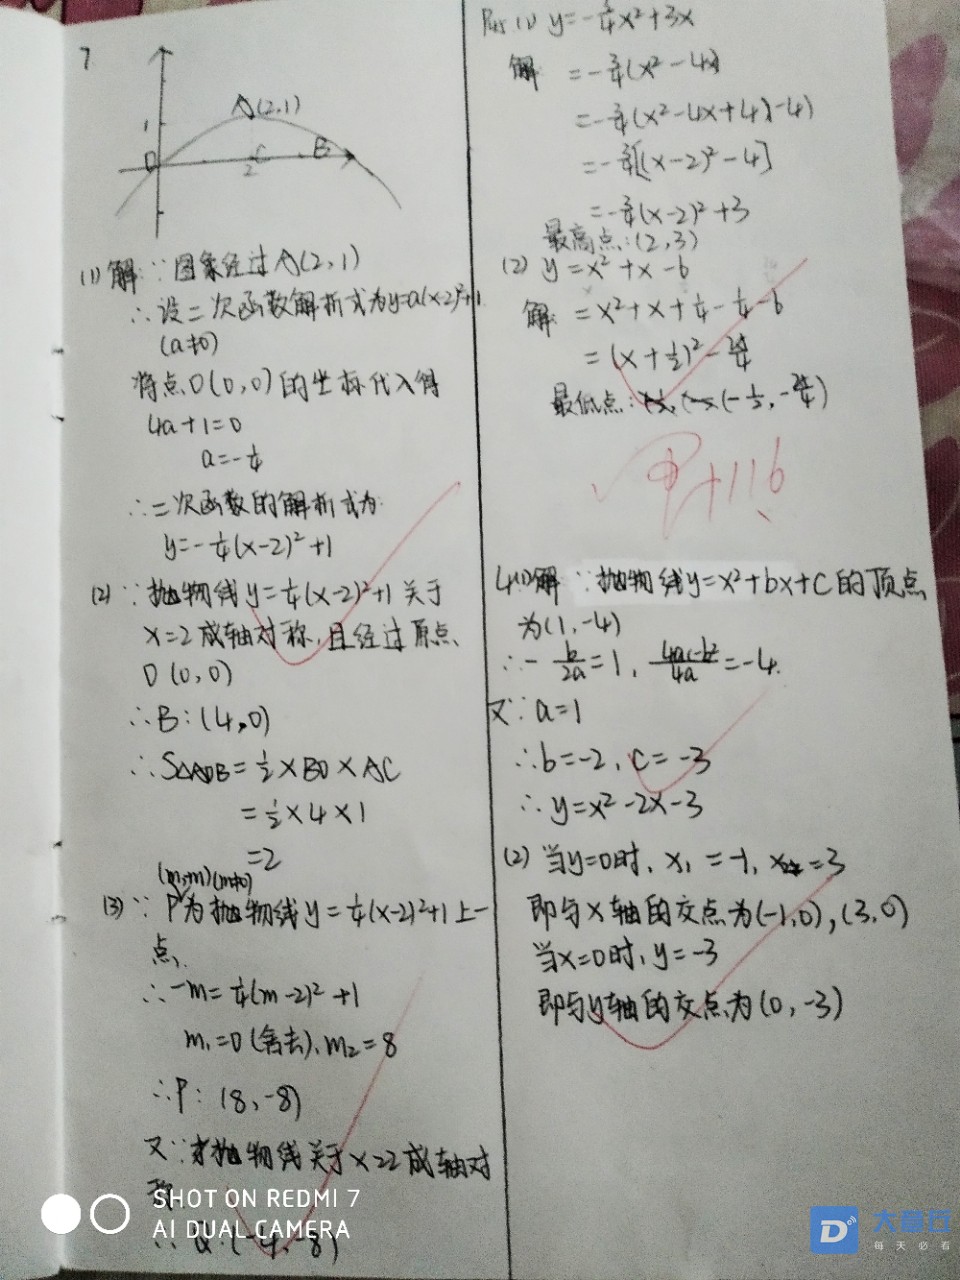 7
A(2,1)
1
O
2
C
B
(1) 解 ∵ 图象经过A(2,1)
∴设二次函数解析式为y=a(x-2)²+1
(a≠0)
将点O(0,0)的坐标代入得
4a+1=0
a=-¼
∴二次函数的解析式为
y=-¼(x-2)²+1
(2) ∵抛物线y=¼(x-2)²+1关于
x=2成轴对称,且经过原点
O(0,0)
∴B:(4,0)
∴S△AOB=½×BO×AC
=½×4×1
=2
(m,-m)(m≠0)
(3) ∵ P为抛物线y=¼(x-2)²+1上一
点,
∴-m=¼(m-2)²+1
m₁=0(舍去),m₂=8
∴P:(8,-8)
又∵抛物线关于x=2成轴对
称
∴Q:(-4,-8)
(1) y=-¾x²+3x
解 =-¾(x²-4x)
=-¾(x²-4x+4-4)
=-¾[(x-2)²-4]
=-¾(x-2)²+3
最高点:(2,3)
(2) y=x²+x-6
解 =x²+x+¼-¼-6
=(x+½)²-25/4
最低点:(-½,-25/4)
4.(1)解 ∵抛物线y=x²+bx+c的顶点
为(1,-4)
∴-b/2a=1,(4ac-b²)/4a=-4.
又∵a=1
∴b=-2,c=-3
∴y=x²-2x-3
(2) 当y=0时,x₁=-1,x₂=3
即与x轴的交点为(-1,0),(3,0)
当x=0时,y=-3
即与y轴的交点为(0,-3)
SHOT ON REDMI 7
AI DUAL CAMERA
每天必看